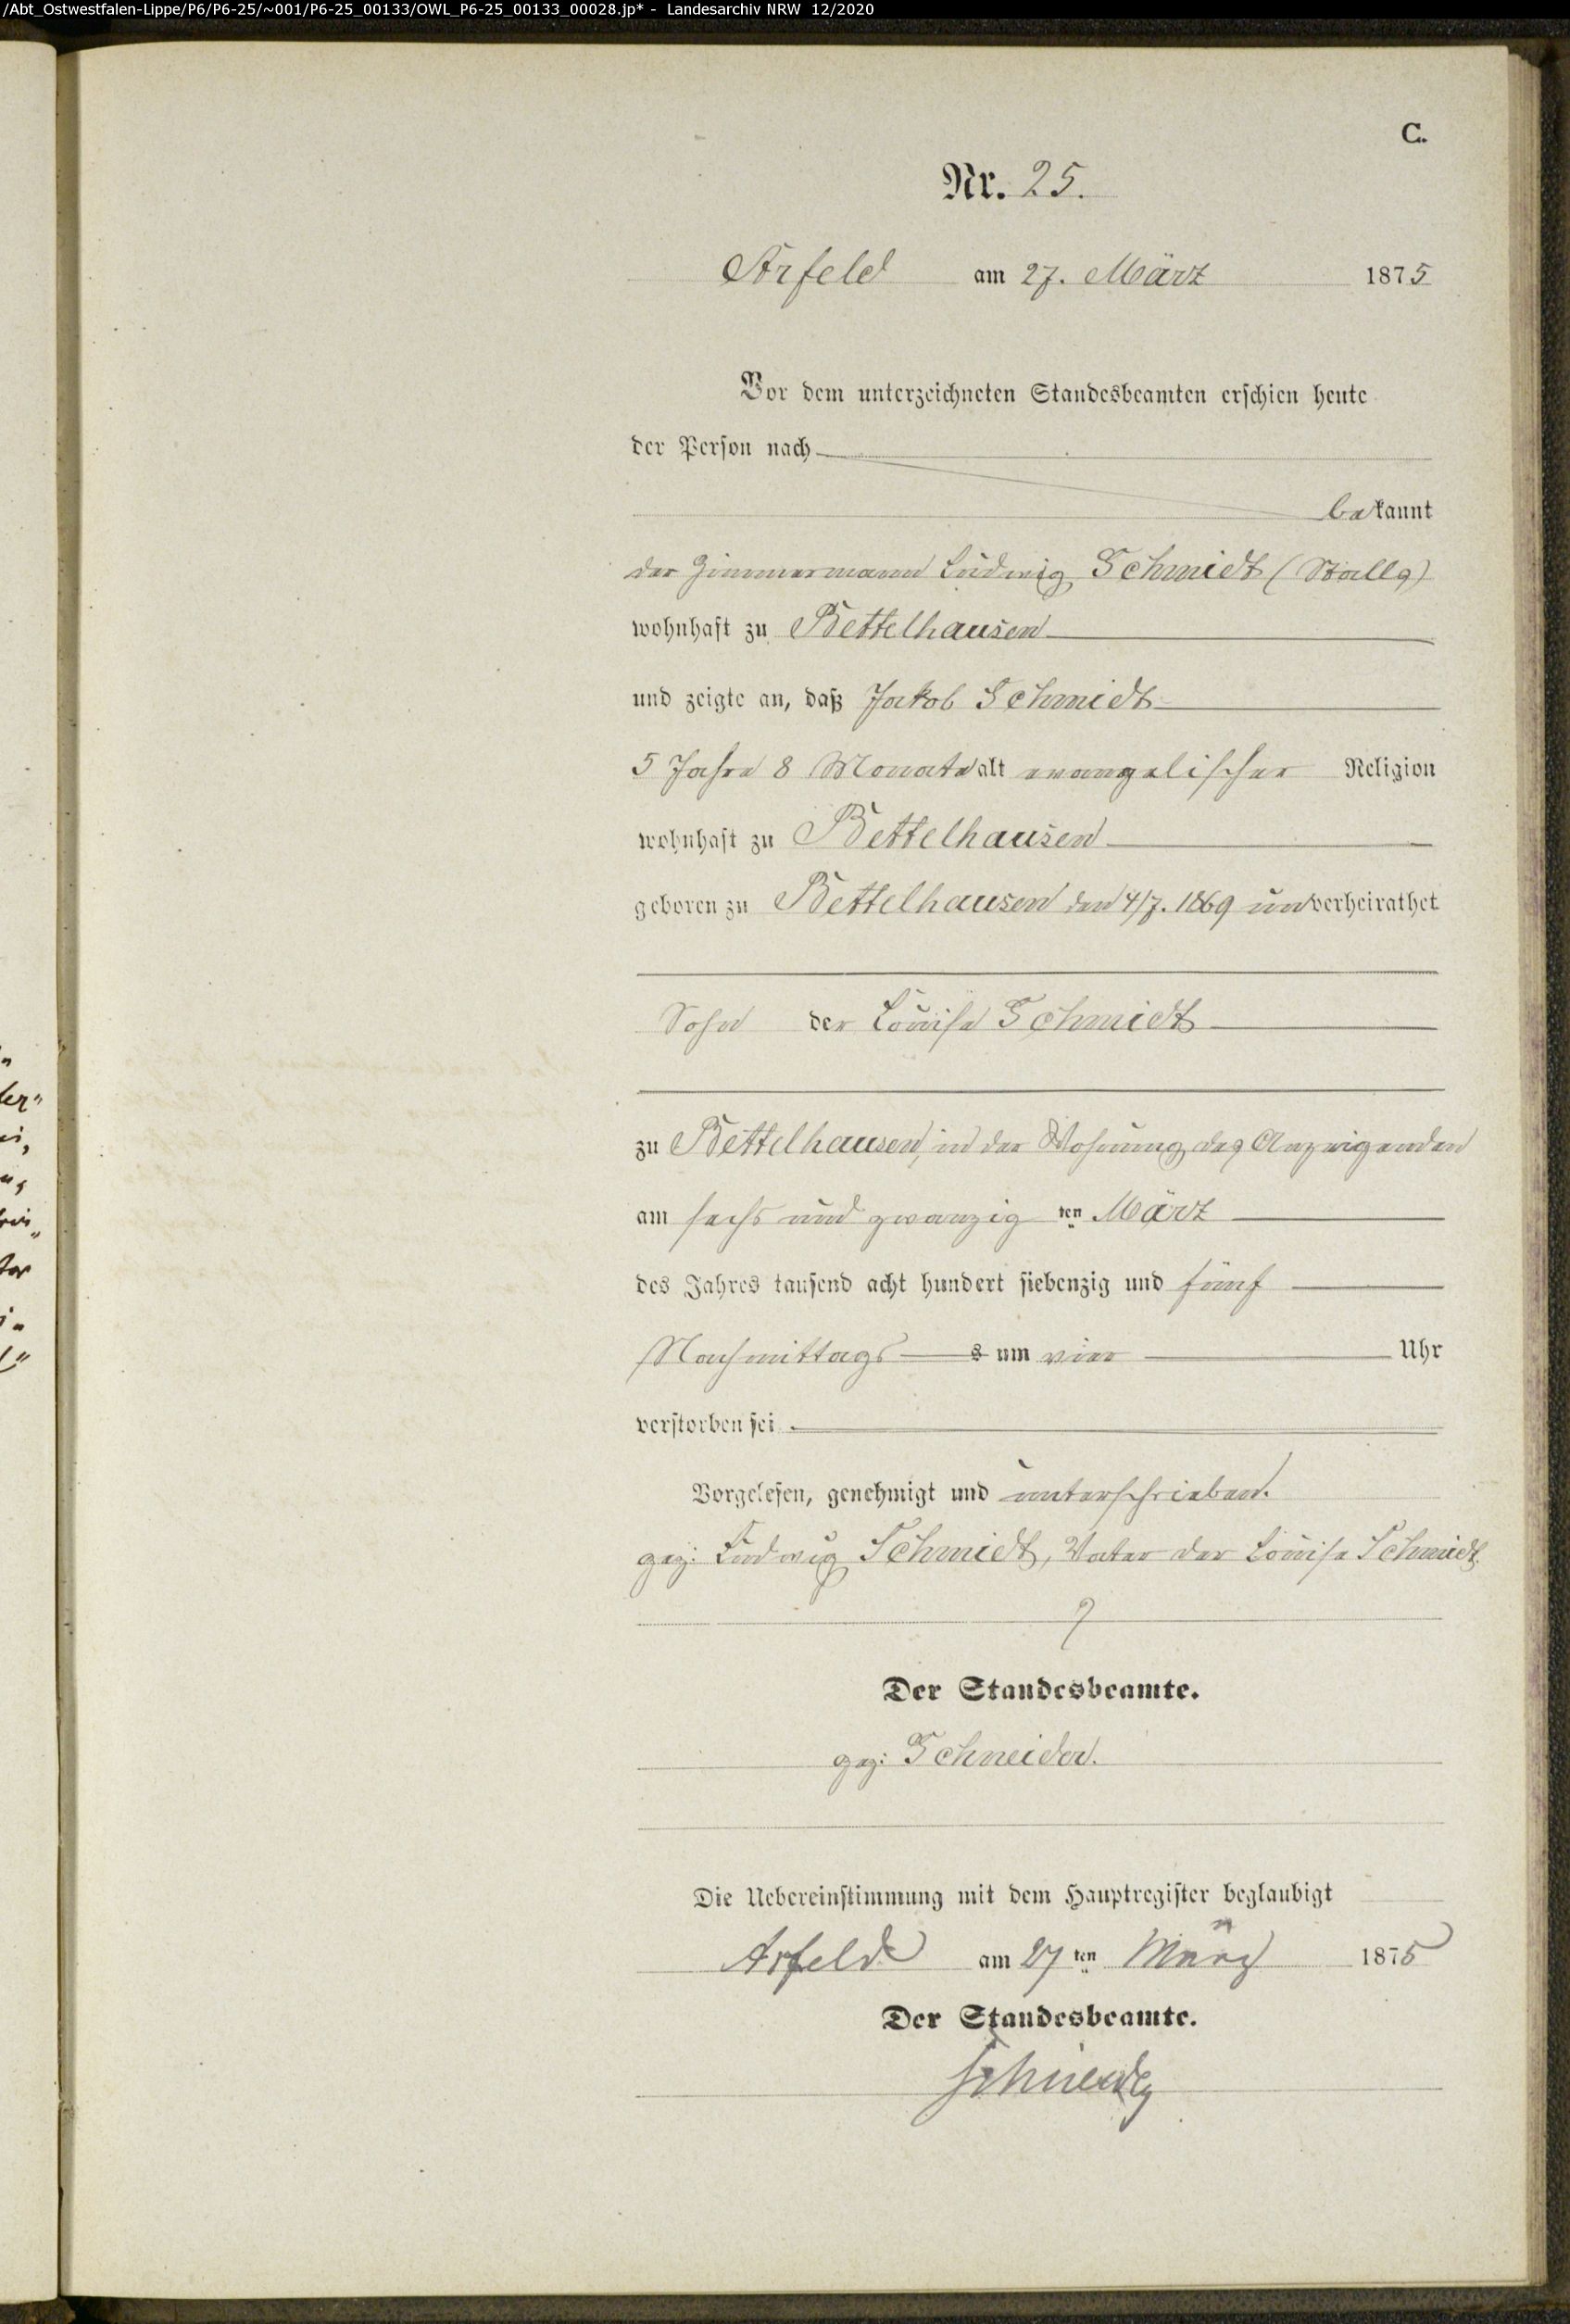 /Abt_Ostwestfalen-Lippe/P6/P6-25/~001/P6-25_00133/OWL_P6-25_00133_00028.jp* - Landesarchiv NRW 12/2020
C.
Nr. 25.
Arfeld am 27. März 1875
Vor dem unterzeichneten Standesbeamten erschien heute
der Person nach
bekannt
der Zimmermann Ludwig Schmidt
wohnhaft zu Bettelhausen
und zeigte an, daß Jakob Schmidt
5 Jahre 8 Monate alt evangelischer Religion
wohnhaft zu Bettelhausen
geboren zu Bettelhausen den 4/7. 1869 unverheirathet
Sohn der Louise Schmidt
zu Bettelhausen, in der Wohnung des Anzeigenden
am sechs und zwanzig ten März
des Jahres tausend acht hundert siebenzig und fünf
Nachmittags um vier Uhr
verstorben sei.
Vorgelesen, genehmigt und unterschrieben.
gez: Ludwig Schmidt, Vater der Louise Schmidt
Der Standesbeamte.
gez: Schneider.
Die Uebereinstimmung mit dem Hauptregister beglaubigt
Arfeld am 27 ten März 1875
Der Standesbeamte.
Schneider